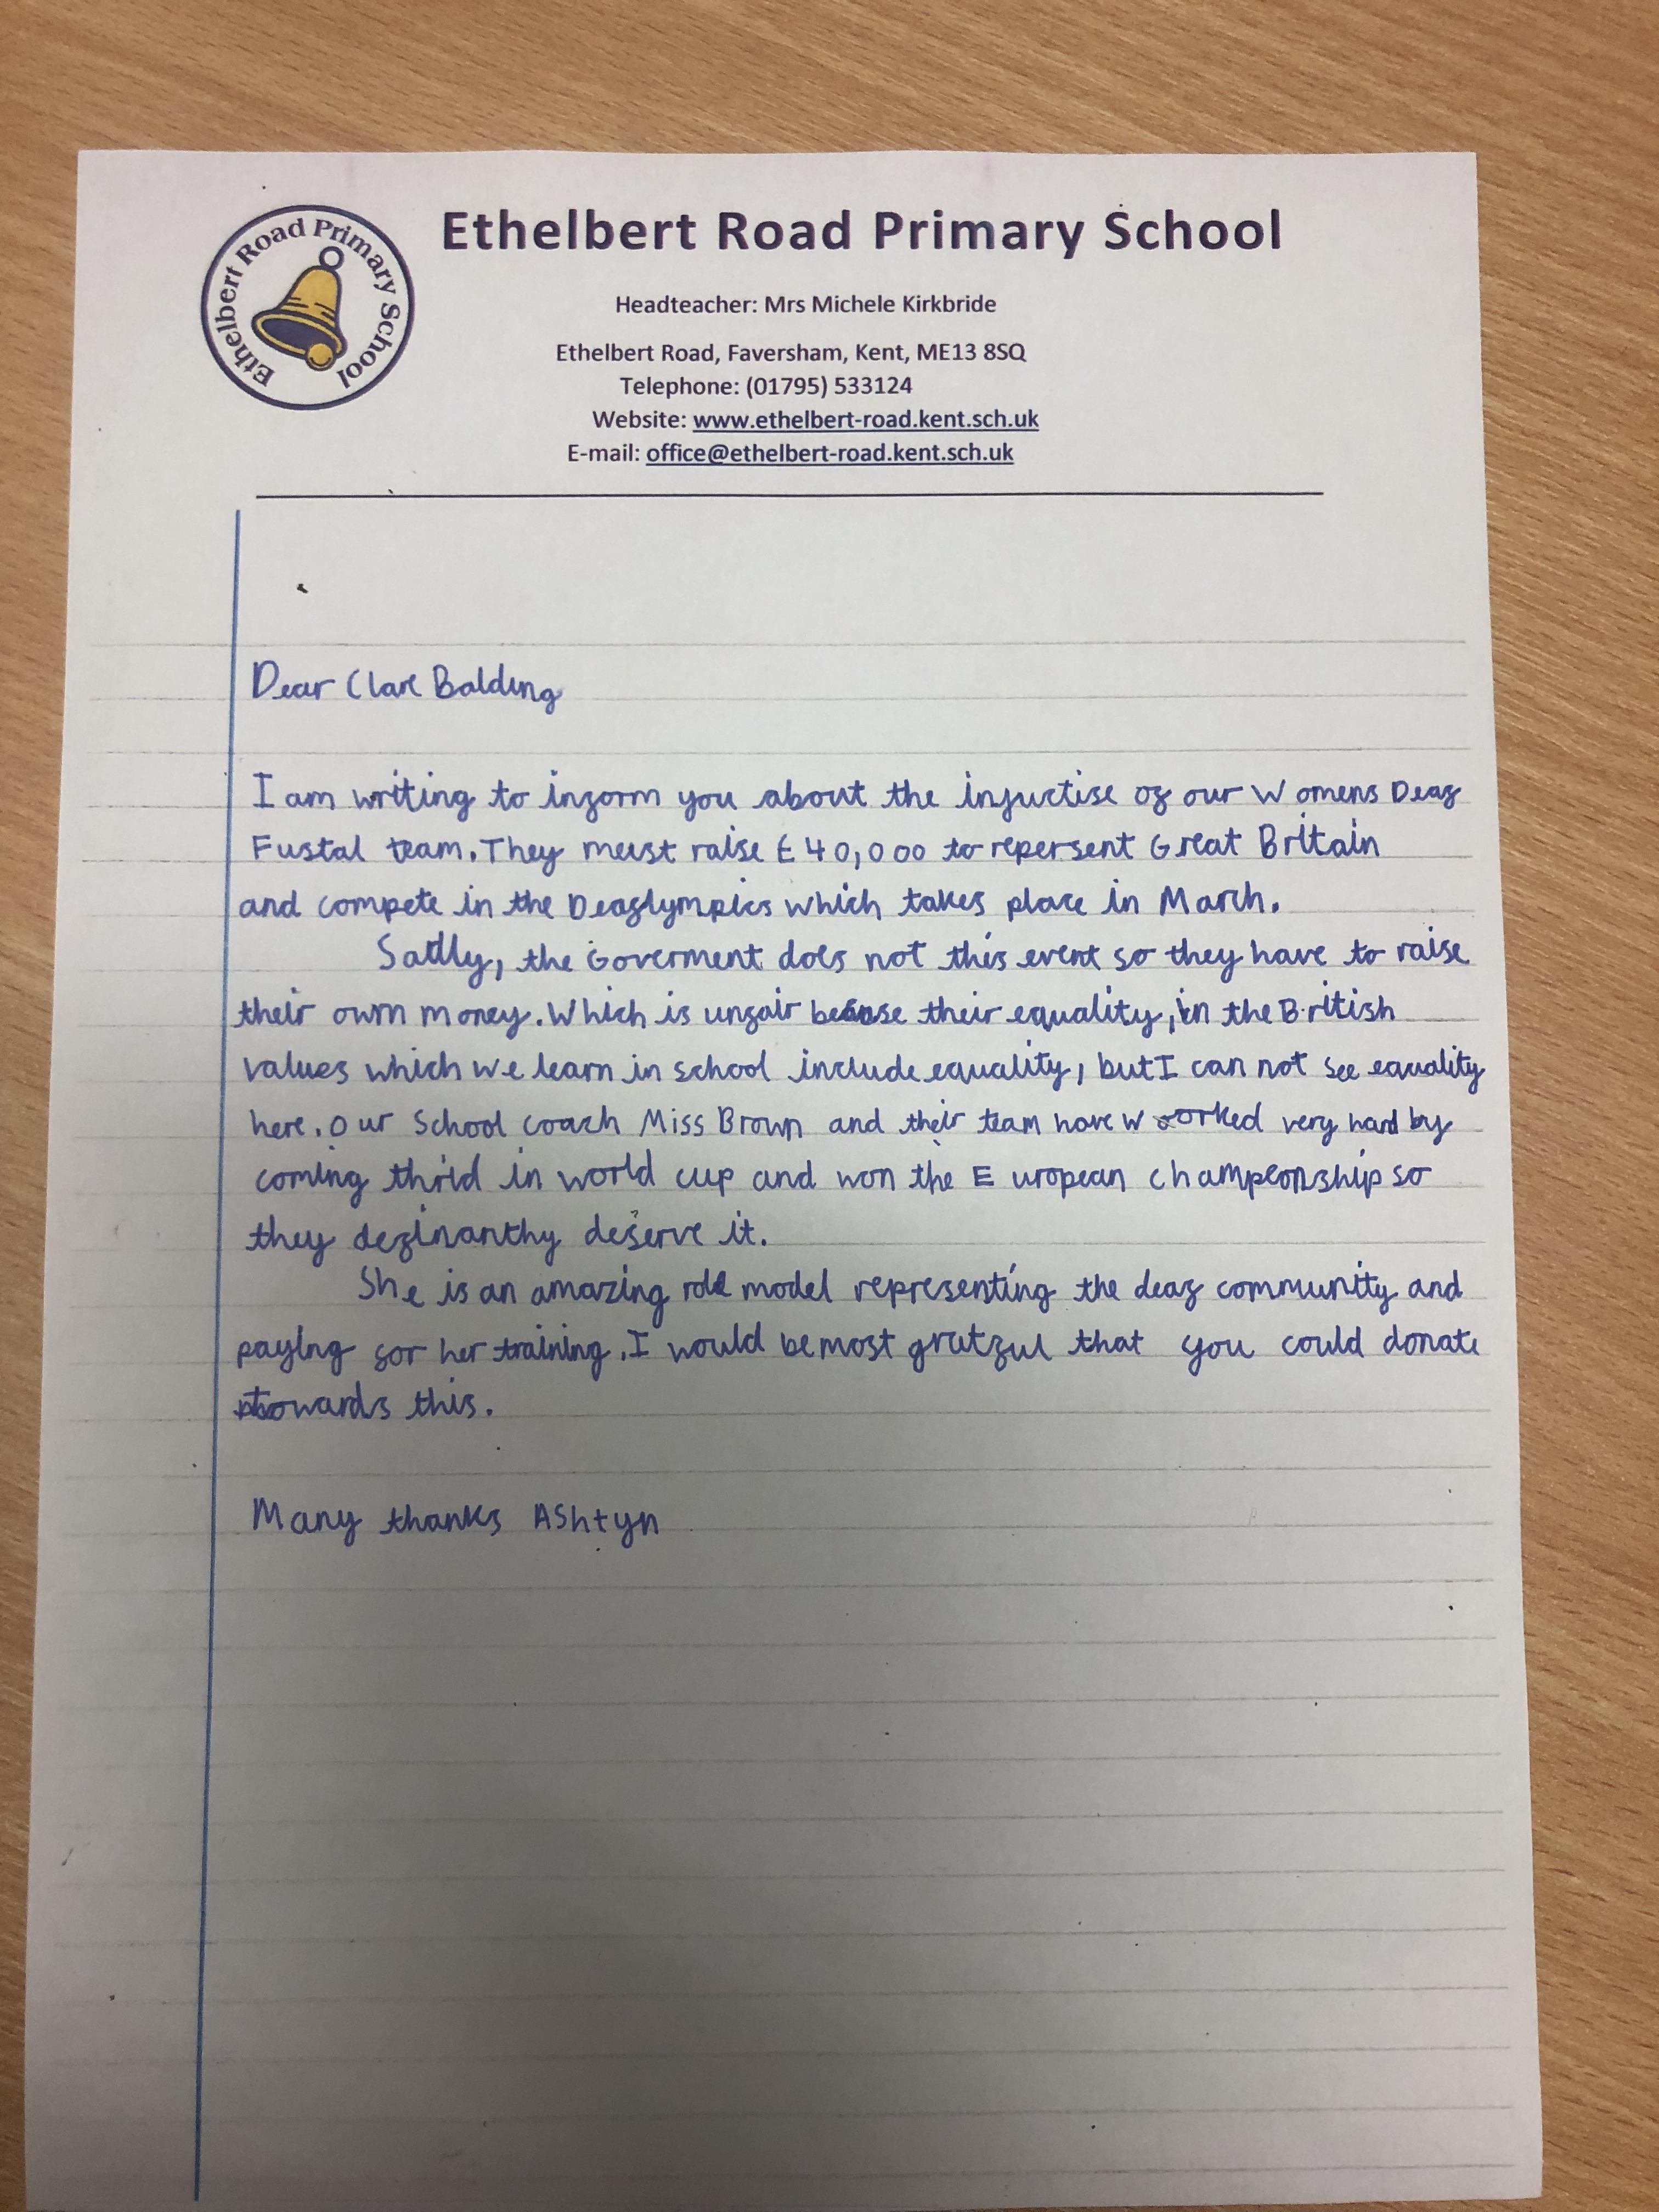 Ethelbert Road Primary School
Ethelbert Road Primary School
Headteacher: Mrs Michele Kirkbride
Ethelbert Road, Faversham, Kent, ME13 8SQ
Telephone: (01795) 533124
Website: www.ethelbert-road.kent.sch.uk
E-mail: office@ethelbert-road.kent.sch.uk
Dear Clare Balding
I am writing to inform you about the injuctise of our Womens Deaf
Fustal team. They must raise £40,000 to repersent Great Britain
and compete in the Deaflympics which takes place in March.
Sadly, the Goverment does not this event so they have to raise
their own money. Which is unfair because their equality, in the British
values which we learn in school include equality, but I can not see equality
here. Our School coach Miss Brown and their team have worked very hard by
coming thrid in world cup and won the European championship so
they definanthy deserve it.
She is an amazing role model representing the deaf community and
paying for her training. I would be most gratful that you could donate
towards this.
Many thanks Ashtyn